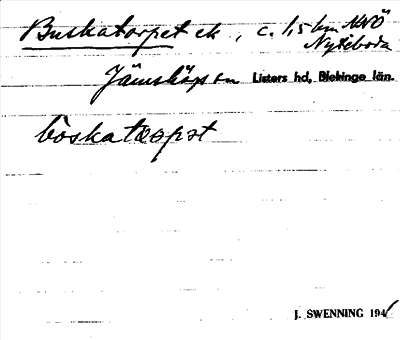 Buskatorpet ek, c. 1,5 km NNÖ
Nyteboda
Jämshögs sn Listers hd, Blekinge län.
bòskatorpət
J. SWENNING 1941